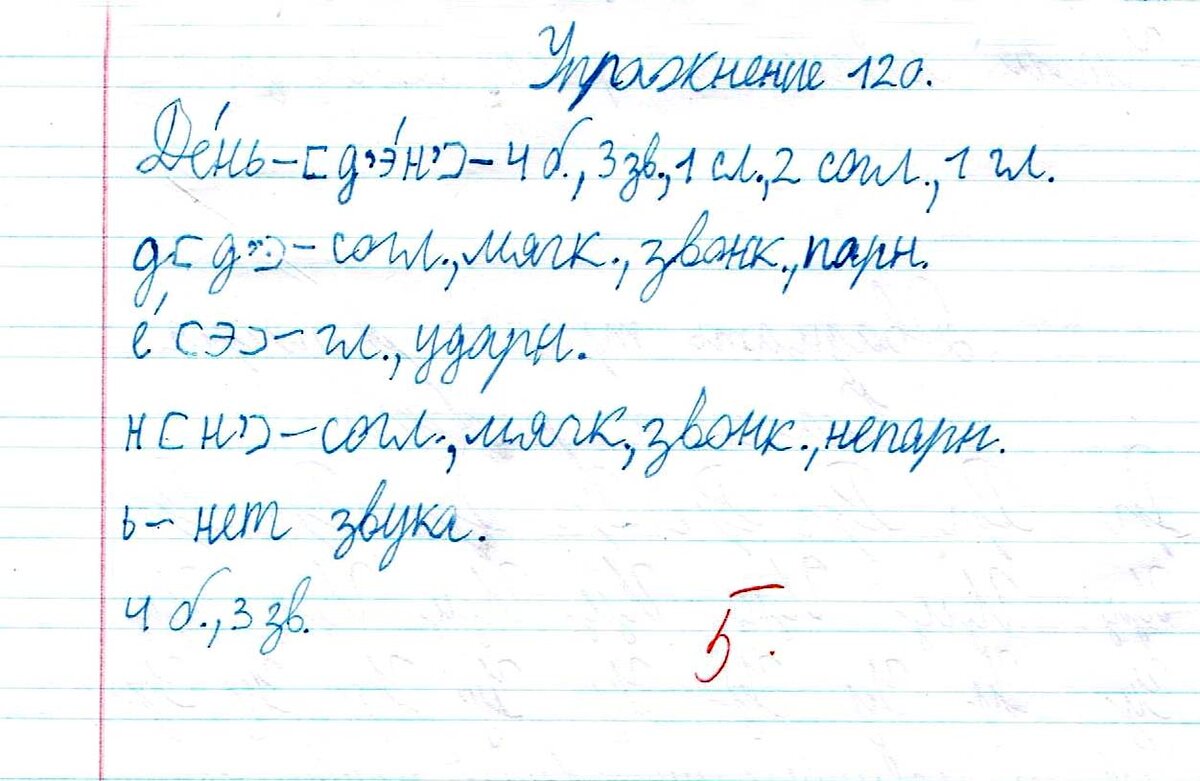 Упражнение 120.
Де́нь-[д'э́н']-4 б., 3 зв., 1 сл., 2 согл., 1 гл.
д[д']-согл., мягк., звонк., парн.
е́[э]-гл., ударн.
н[н']-согл., мягк., звонк., непарн.
ь-нет звука.
4 б., 3 зв.
5.